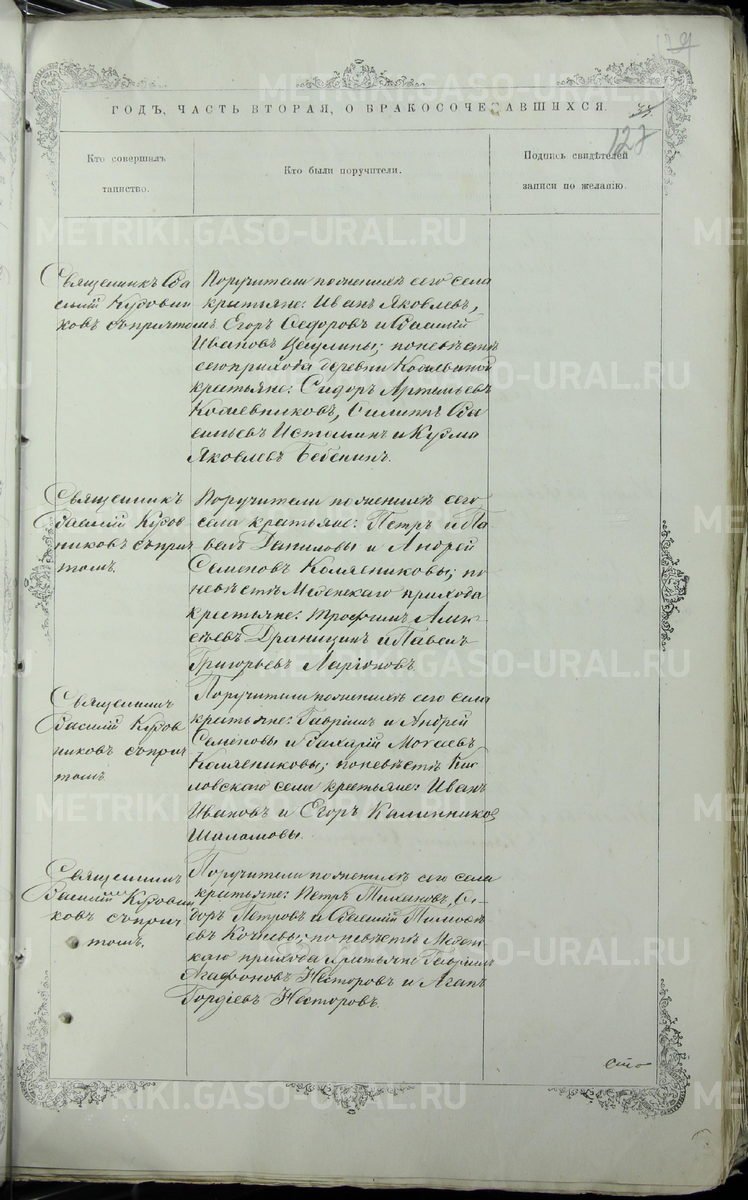 METRIKI.GASO-URAL.RU
127
ГОДЪ, ЧАСТЬ ВТОРАЯ, О БРАКОСОЧЕТАВШИХСЯ.
Кто совершалъ
таинство.
Кто были поручители.
Подпись свидѣтелей
записи по желанію.
Священникъ Ва
силій Кудовни
ковъ съ причтомъ
Поручители по женихѣ сего села
крестьяне: Иванъ Яковлевъ,
Егоръ Ѳедоровъ и Василій
Ивановъ по невѣстѣ
сего прихода деревни
крестьяне: Сидоръ Артемьевъ
Кожевниковъ, Филиппъ Ва
сильевъ Истоминъ и Кузма
Яковлевъ Бебенинъ.
Священникъ
Василій Кудов
никовъ съ прич
томъ.
Поручители по женихѣ сего
села крестьяне: Петръ и Па
велъ Даниловы и Андрей
Семеновъ Колясниковы; по
невѣстѣ Меденскаго прихода
крестьяне: Трофимъ Алек
сѣевъ Драницинъ и Павелъ
Григорьевъ Ларіоновъ.
Священникъ
Василій Кудов
никовъ съ прич
томъ.
Поручители по женихѣ сего села
крестьяне: Гавріилъ и Андрей
Семеновы и Захарій Моѵсеевъ
Колясниковы; по невѣстѣ Кис
ловскаго села крестьяне: Иванъ
Ивановъ и Егоръ Калинниковъ
Шаламовы.
Священникъ
Василій Кудовни
ковъ съ прич
томъ.
Поручители по женихѣ сего села
крестьяне: Петръ Си
доръ Петровъ и Василій Тимоѳе
евъ Кочневы; по невѣстѣ Меден
скаго прихода крестьяне Гавріилъ
Агафоновъ Несторовъ и Агапъ
Гордѣевъ Несторовъ.
METRIKI.GASO-URAL.RU